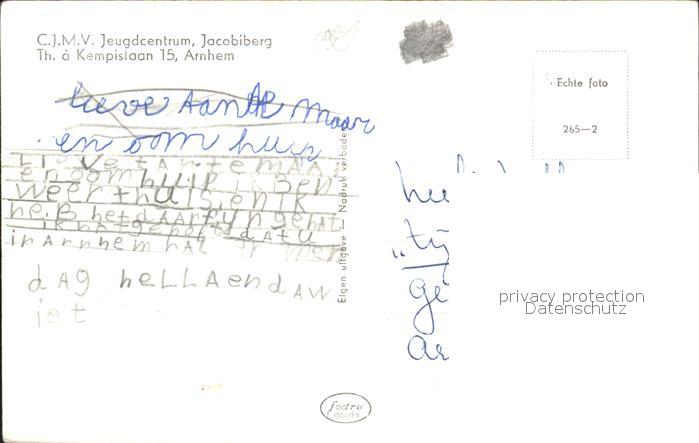 C.J.M.V. Jeugdcentrum, Jacobiberg
Th. à Kempislaan 15, Arnhem
Echte foto
265—2
lieve tante maar
en oom huip
lieve tante maar
en oom huip ik ben
weer thuis en ik
heb het daar fijn gehat
ik hat gehoopt datu
in Arnhem hat
dag hella en daw
jet
Eigen uitgave — Nadruk verboden
privacy protection
Datenschutz
fodru
gouda